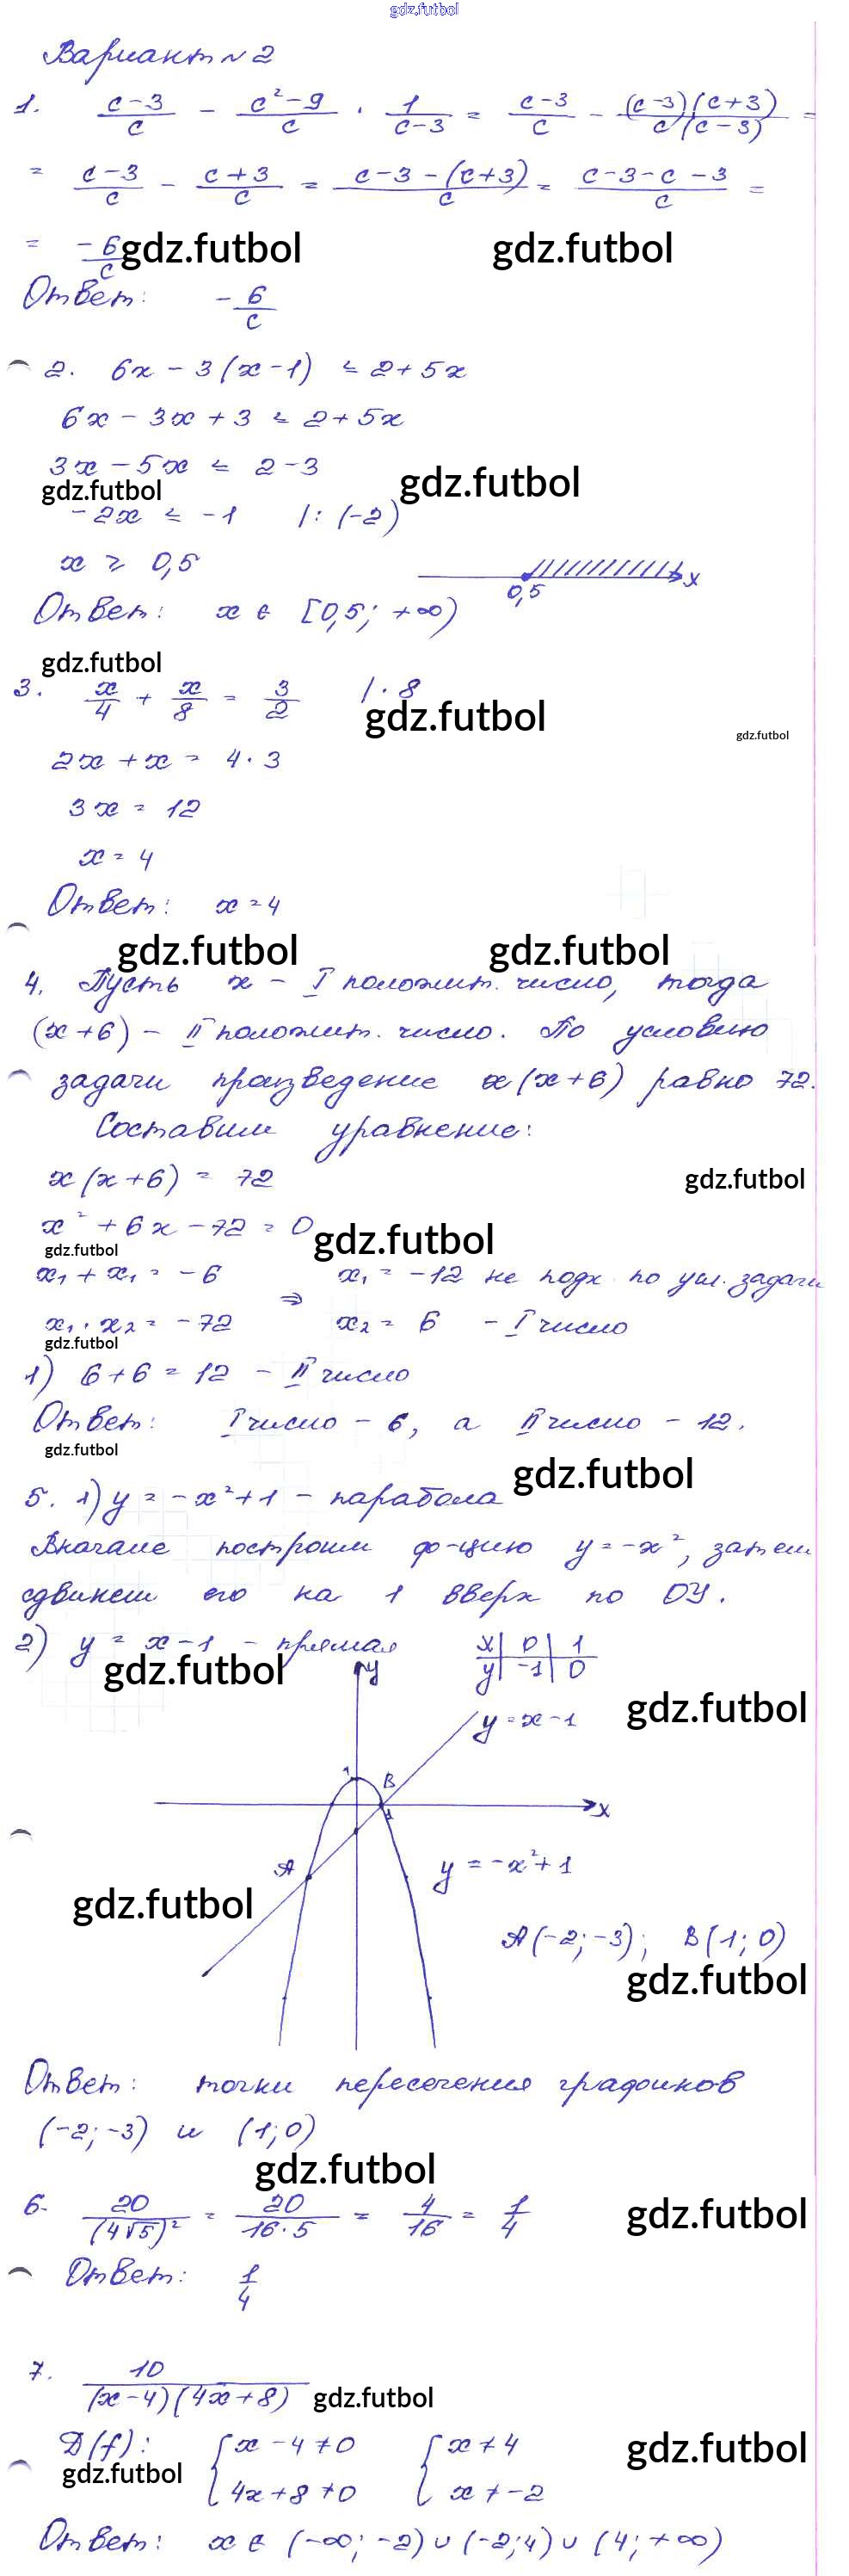 gdz.futbol
Вариант №2
1. (c-3)/c - (c²-9)/c · 1/(c-3) = (c-3)/c - (c-3)(c+3)/c(c-3) =
= (c-3)/c - (c+3)/c = (c-3-(c+3))/c = (c-3-c-3)/c =
= -6/c gdz.futbol gdz.futbol
Ответ: -6/c
2. 6x - 3(x-1) ≤ 2+5x
6x - 3x + 3 ≤ 2+5x
3x - 5x ≤ 2-3
gdz.futbol gdz.futbol
-2x ≤ -1 |: (-2)
x ≥ 0,5
0,5 x
Ответ: x ∈ [0,5; +∞)
gdz.futbol
3. x/4 + x/8 = 3/2 |·8
gdz.futbol
gdz.futbol
2x + x = 4·3
3x = 12
x = 4
Ответ: x = 4
gdz.futbol gdz.futbol
4. Пусть x - I положит. число, тогда
(x+6) - II положит. число. По условию
задачи произведение x(x+6) равно 72.
Составим уравнение:
x(x+6) = 72
gdz.futbol
x² + 6x - 72 = 0
gdz.futbol
gdz.futbol
x₁ + x₁ = -6 x₁ = -12 не подх по усл. задачи
⇒
x₁ · x₂ = -72 x₂ = 6 - I число
gdz.futbol
1) 6+6 = 12 - II число
Ответ: I число - 6, а II число - 12.
gdz.futbol
gdz.futbol
5. 1) y = -x²+1 - парабола
Вначале построим ф-цию y = -x², затем
сдвинем его на 1 вверх по OY.
2) y = x-1 - прямая
x | 0 | 1
y | -1 | 0
gdz.futbol
gdz.futbol
y
y = x-1
1 B
1 x
A
y = -x²+1
gdz.futbol
A(-2;-3); B(1;0)
gdz.futbol
Ответ: точки пересечения графиков
(-2;-3) и (1;0)
gdz.futbol
6. 20/(4√5)² = 20/(16·5) = 4/16 = 1/4
gdz.futbol
Ответ: 1/4
7. 10/((x-4)(4x+8))
gdz.futbol
D(f): { x-4≠0 { x≠4
gdz.futbol
gdz.futbol
4x+8≠0 x≠-2
Ответ: x ∈ (-∞; -2) ∪ (-2;4) ∪ (4; +∞)